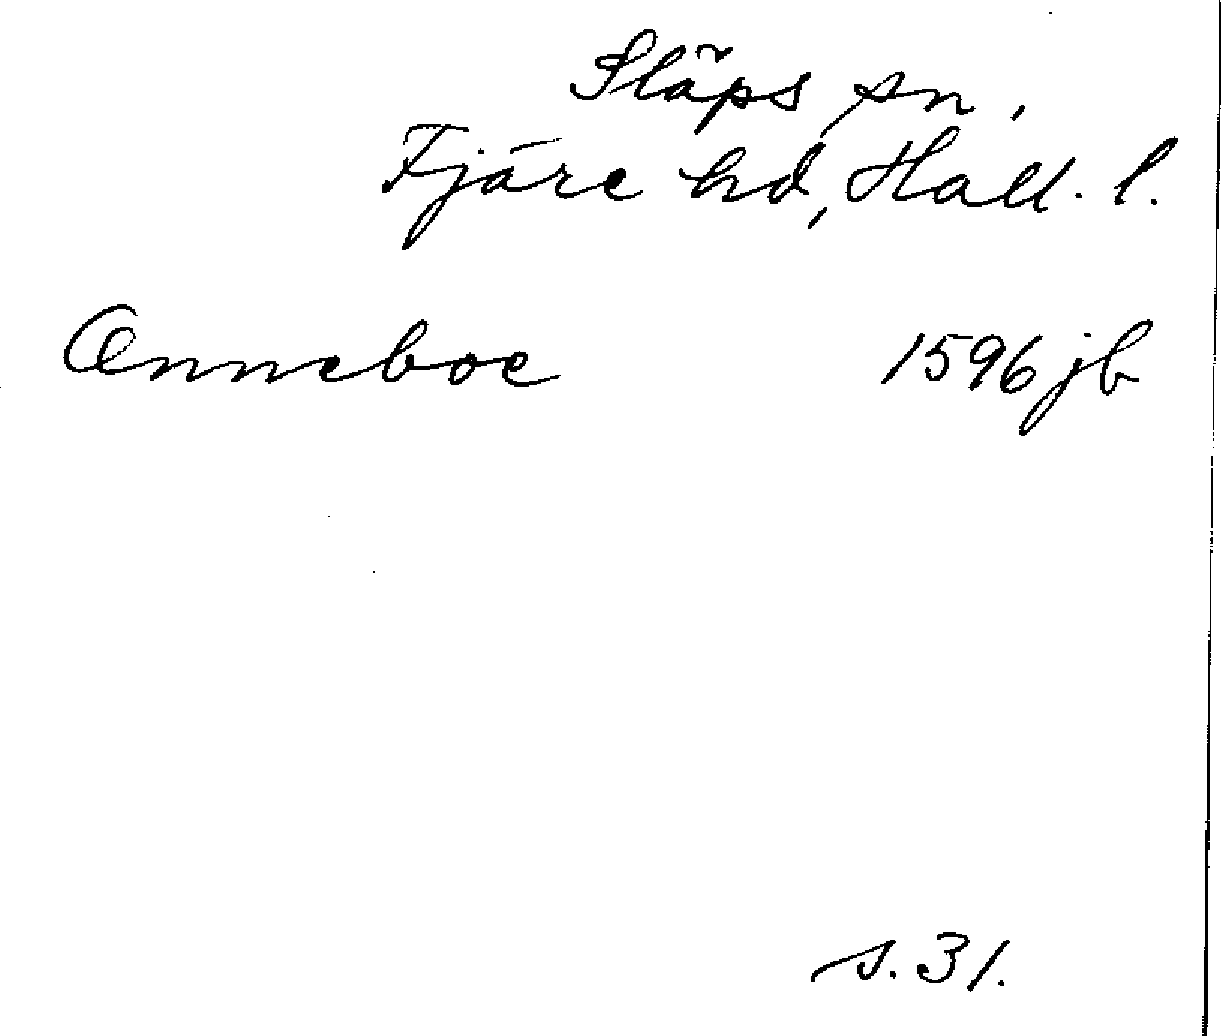 Släps sn,
Fjäre hd, Hall. l.
Anneboe 1596 jb
s. 31.